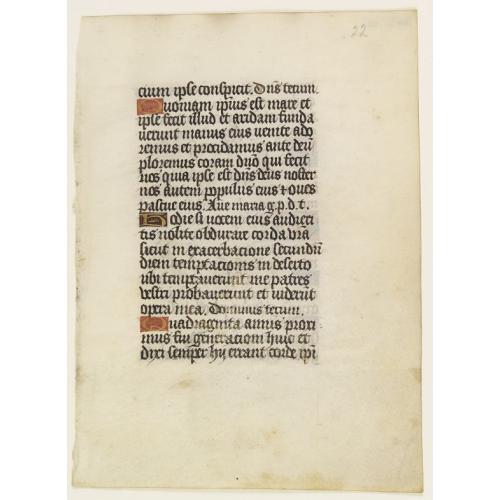 22
cium ipse conspicit. Dn̄s tecum.
Quoniam ip̄ius est mare et
ipse fecit illud et aridam funda
uerunt manus eius venite ado
remus et procidamus ante deū
ploremus coram dn̄o qui fecit
nos quia ipse est dn̄s deus noster
nos autem populus eius ⁊ oues
pascue eius. Aue maria g. p. d. t.
Hodie si uocem eius audieri
tis nolite obdurare corda vr̄a
sicut in exacerbacione secundū
diem temptacionis in deserto
ubi temptauerunt me patres
vestri probauerunt et uiderunt
opera mea. Dominus tecum.
Quadraginta annis proxi
mus fui generacioni huic et
dixi semper hij errant corde ip̄i